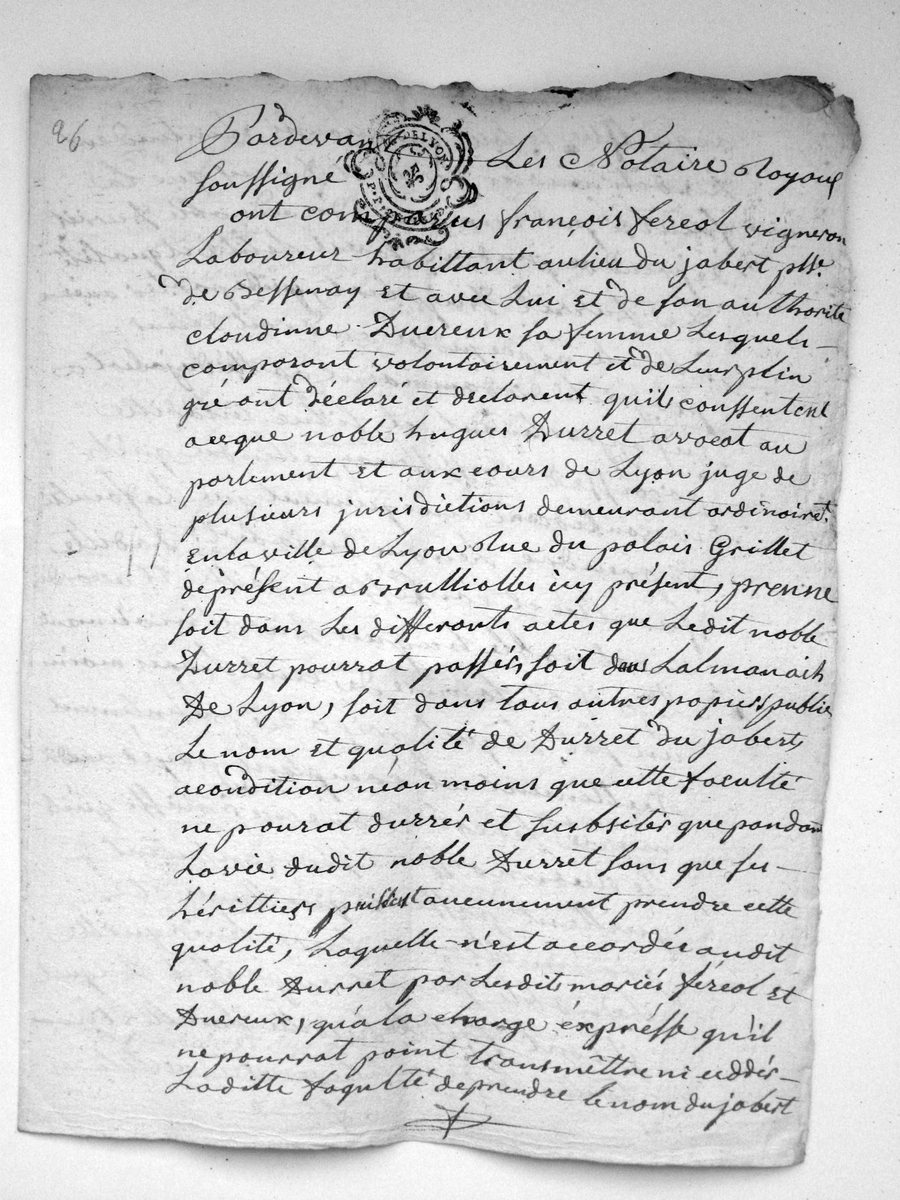 26
Pardevant Les Notaire Royaux
soussigné
ont comparus françois fereol vigneron
Laboureur habittant au lieu du jabert psse
de Bessenay Et avec Lui Et de son authorité
claudinne Duereux sa femme Lesquels
comparant volontairement et de Leur plin
gré ont déclaré et declarent quils conssentent
a ce que noble hugues Durret avocat au
parlement Et aux cours de Lyon juge de
plusieurs jurisdictions demeurant ordinairet
En la ville de Lyon Rue du palais Grillet
de présent a icy présent, prenne
soit dans Les differants actes que Ledit noble
Durret pourrat passér, soit dans Lalmanach
De Lyon, soit dans tous autres papiers publics
Le nom et qualité de Durret du jabert,
acondition néan moins que cette faculté
ne pourat durrér et susbsitér que pandant
La vie dudit noble Durret sans que ses
hérittiers puissent aucunnement prendre cette
qualité, Laquelle n'est accordés audit
noble Durret par Lesdits mariés féreol Et
Duereux, qu'a la charge éxprésse qu'il
ne pourrat point transmêttre ni ceddér
Laditte faqulté de prendre le nom du jabert